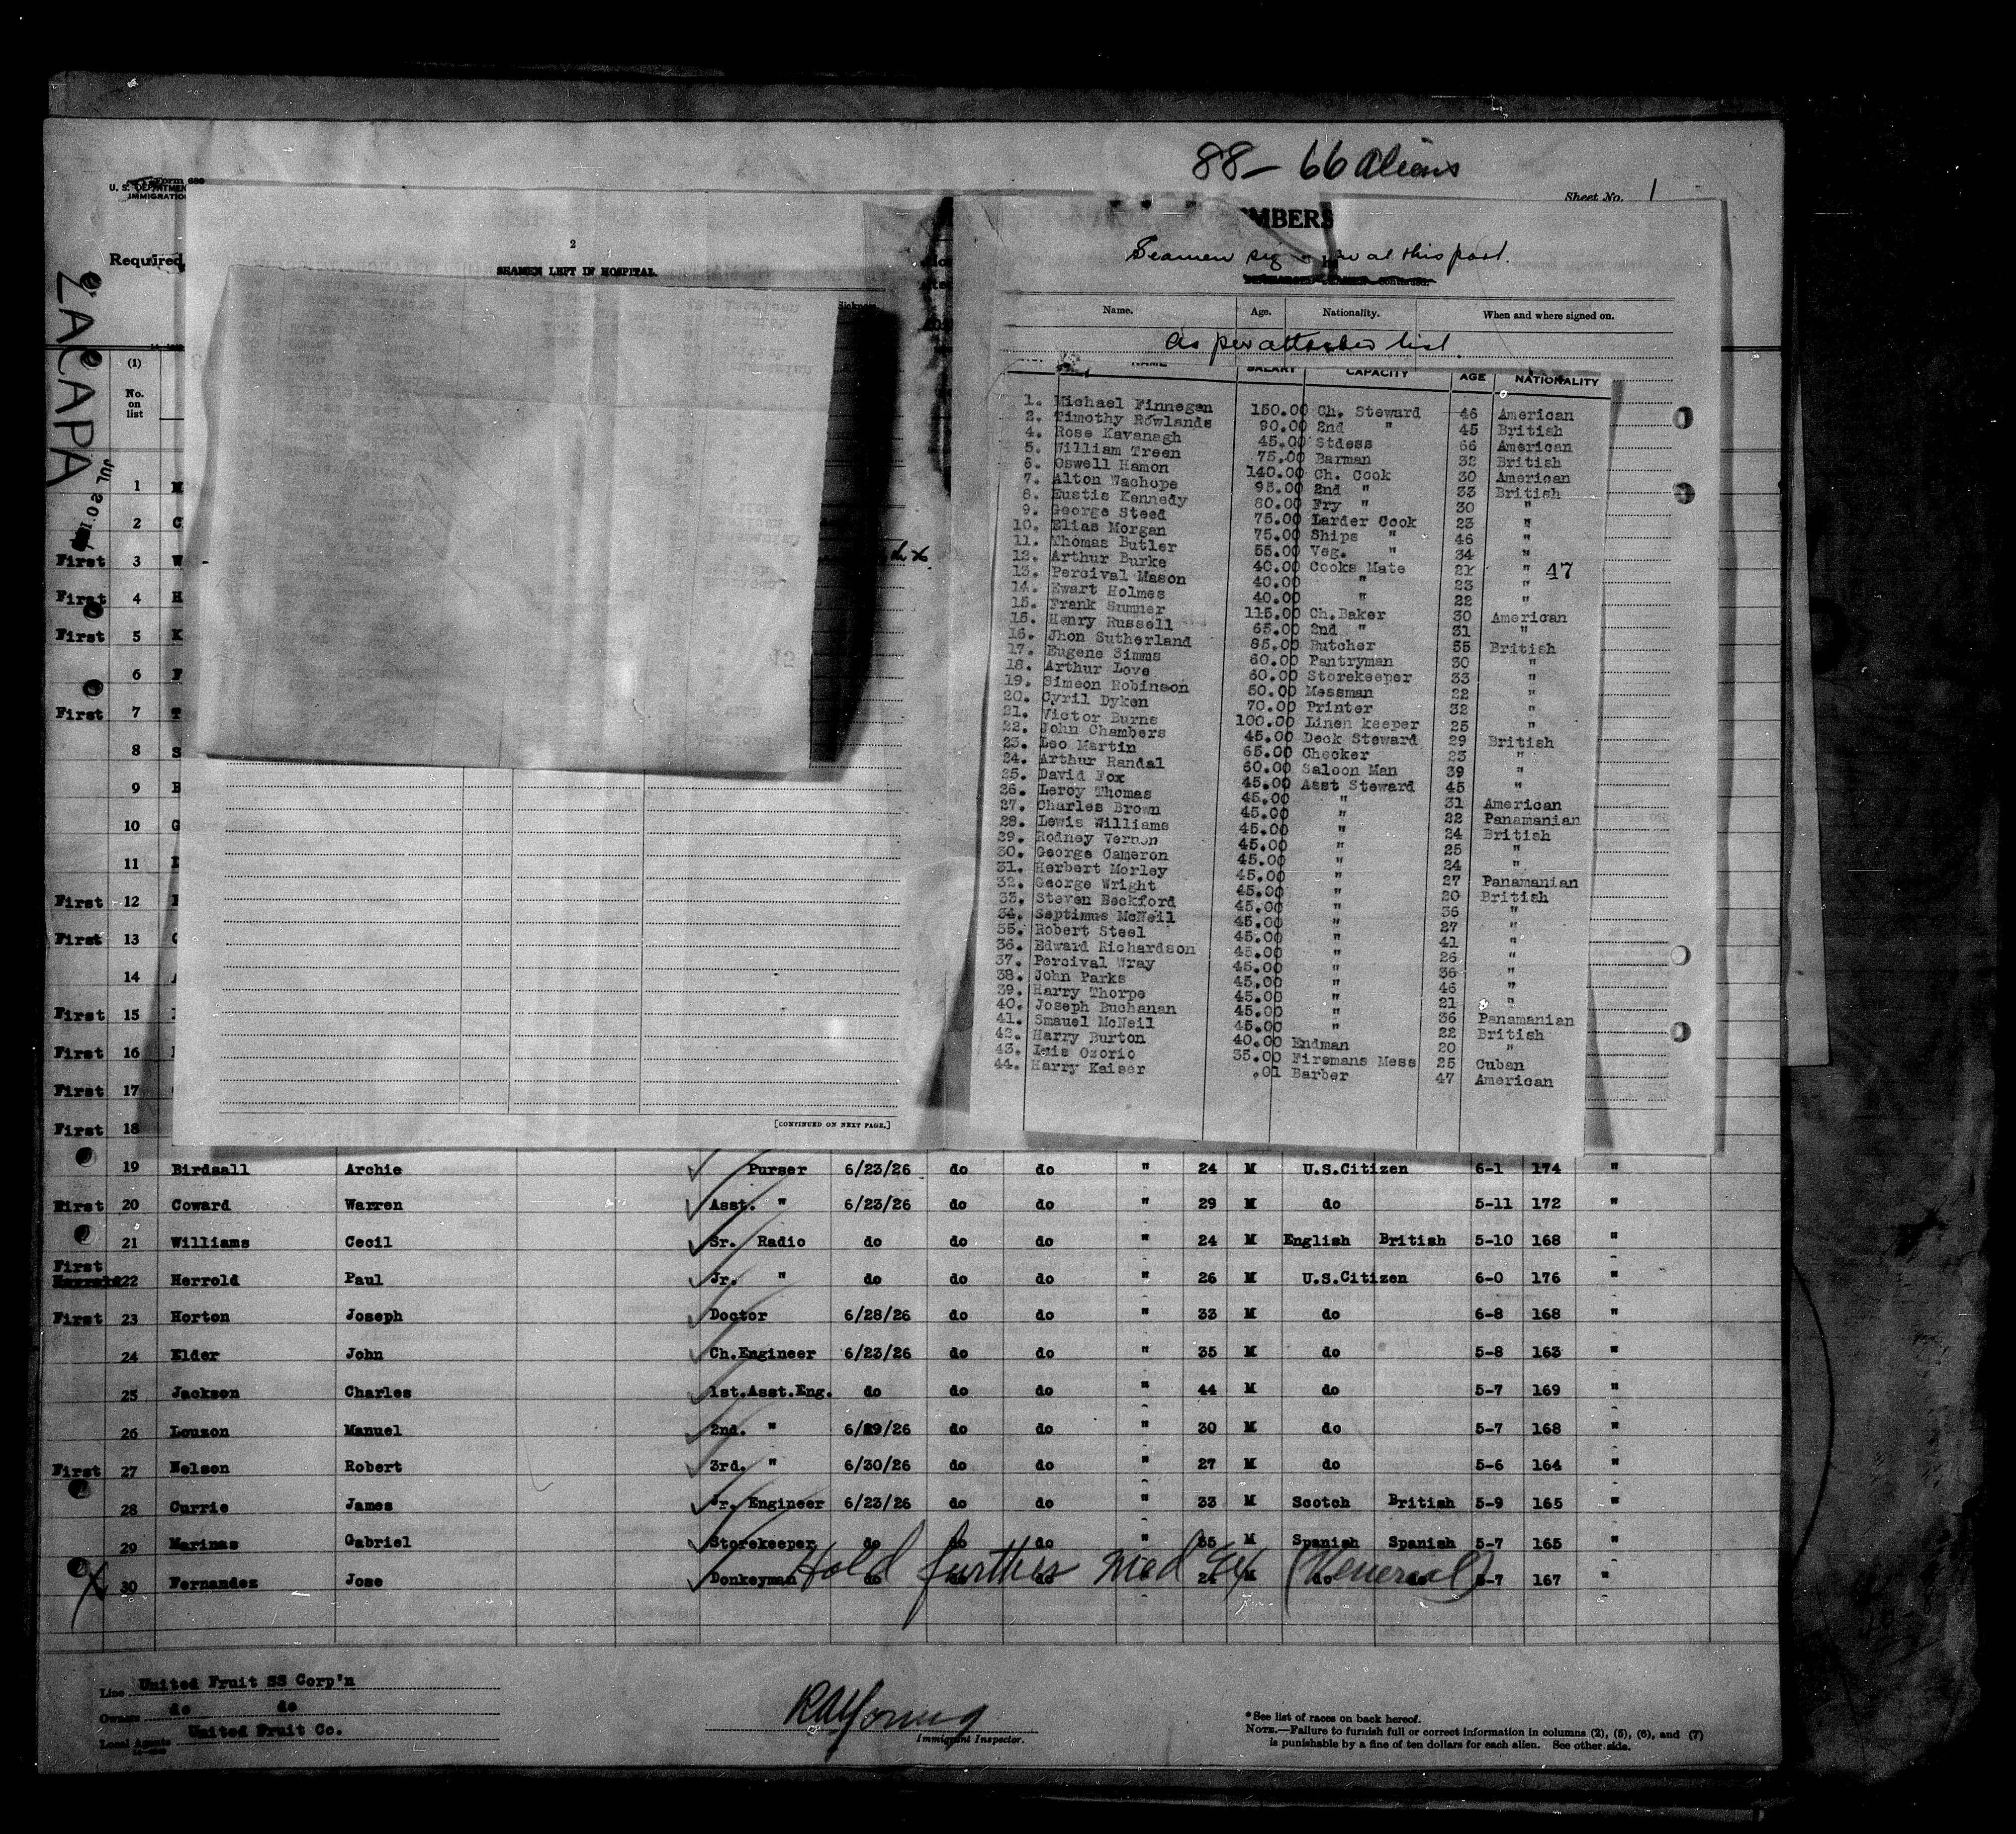 88 – 66 Aliens
Form 680
U. S. DEPARTMENT
IMMIGRATION
Sheet No. 1
Required
ZACAPA
(1)
No.
on
list
2
SEAMEN LEFT IN HOSPITAL.
Sickness.
MBERS
Seamen at this port.
continued.
Name. Age. Nationality. When and where signed on.
As per attached list.
NAME SALARY CAPACITY AGE NATIONALITY
1. Michael Finnegan 150.00 Ch. Steward 46 American
2. Timothy Rowlands 90.00 2nd " 45 British
4. Rose Kavanagh 45.00 Stdess 66 American
5. William Treen 75.00 Barman 32 British
6. Oswell Hamon 140.00 Ch. Cook 30 American
7. Alton Wachope 95.00 2nd " 33 British
8. Eustis Kennedy 80.00 Fry " 30 "
9. George Steed 75.00 Larder Cook 23 "
10. Elias Morgan 75.00 Ships " 46 "
11. Thomas Butler 55.00 Veg. " 34 "
12. Arthur Burke 40.00 Cooks Mate 21 " 47
13. Percival Mason 40.00 " 23 "
14. Ewart Holmes 40.00 " 22 "
15. Frank Sumner 115.00 Ch.Baker 30 American
15. Henry Russell 65.00 2nd " 31 "
16. Jhon Sutherland 85.00 Butcher 35 British
17. Eugene Simms 60.00 Pantryman 30 "
18. Arthur Love 60.00 Storekeeper 33 "
19. Simeon Robinson 50.00 Messman 22 "
20. Cyril Dyken 70.00 Printer 32 "
21. Victor Burns 100.00 Linen keeper 25 "
22. John Chambers 45.00 Deck Steward 29 British
23. Leo Martin 65.00 Checker 23 "
24. Arthur Randal 60.00 Saloon Man 39 "
25. David Fox 45.00 Asst Steward 45 "
26. Leroy Thomas 45.00 " 31 American
27. Charles Brown 45.00 " 22 Panamanian
28. Lewis Williams 45.00 " 24 British
29. Rodney Vernon 45.00 " 25 "
30. George Cameron 45.00 " 24 "
31. Herbert Morley 45.00 " 27 Panamanian
32. George Wright 45.00 " 20 British
33. Steven Beckford 45.00 " 36 "
34. Septimus McNeil 45.00 " 27 "
35. Robert Steel 45.00 " 41 "
36. Edward Richardson 45.00 " 26 "
37. Percival Wray 45.00 " 36 "
38. John Parks 45.00 " 46 "
39. Harry Thorpe 45.00 " 21 "
40. Joseph Buchanan 45.00 " 36 Panamanian
41. Smauel McNeil 45.00 " 22 British
42. Harry Burton 40.00 Endman 20 "
43. Luis Ozorio 35.00 Firemans Mess 25 Cuban
44. Harry Kaiser .01 Barber 47 American
[CONTINUED ON NEXT PAGE.]
1 M
2 C
First 3 W
First 4 H
First 5 K
6 F
First 7 T
8 S
9
10 G
11
First 12
First 13
14
First 15
First 16
First 17
First 18
19 Birdsall Archie Purser 6/23/26 do do " 24 M U.S.Citizen 6-1 174 "
First 20 Coward Warren Asst. " 6/23/26 do do " 29 M do 5-11 172 "
21 Williams Cecil Sr. Radio do do do " 24 M English British 5-10 168 "
First 22 Herrold Paul Jr. " do do do " 26 M U.S.Citizen 6-0 176 "
First 23 Horton Joseph Doctor 6/28/26 do do " 33 M do 6-8 168 "
24 Elder John Ch.Engineer 6/23/26 do do " 35 M do 5-8 163 "
25 Jackson Charles 1st.Asst.Eng. do do do " 44 M do 5-7 169 "
26 Louzon Manuel 2nd. " 6/29/26 do do " 30 M do 5-7 168 "
First 27 Nelson Robert 3rd. " 6/30/26 do do " 27 M do 5-6 164 "
28 Currie James Jr. Engineer 6/23/26 do do " 33 M Scotch British 5-9 165 "
29 Marinas Gabriel Storekeeper do do do " 35 M Spanish Spanish 5-7 165 "
30 Fernandez Jose Donkeyman do do do 24 M do do 5-7 167 "
Hold further Med Ex (Venereal)
Line United Fruit SS Corp'n
Owners do do
Local Agents United Fruit Co.
RAYoung
Immigrant Inspector.
*See list of races on back hereof.
NOTE.—Failure to furnish full or correct information in columns (2), (5), (6), and (7)
is punishable by a fine of ten dollars for each alien. See other side.